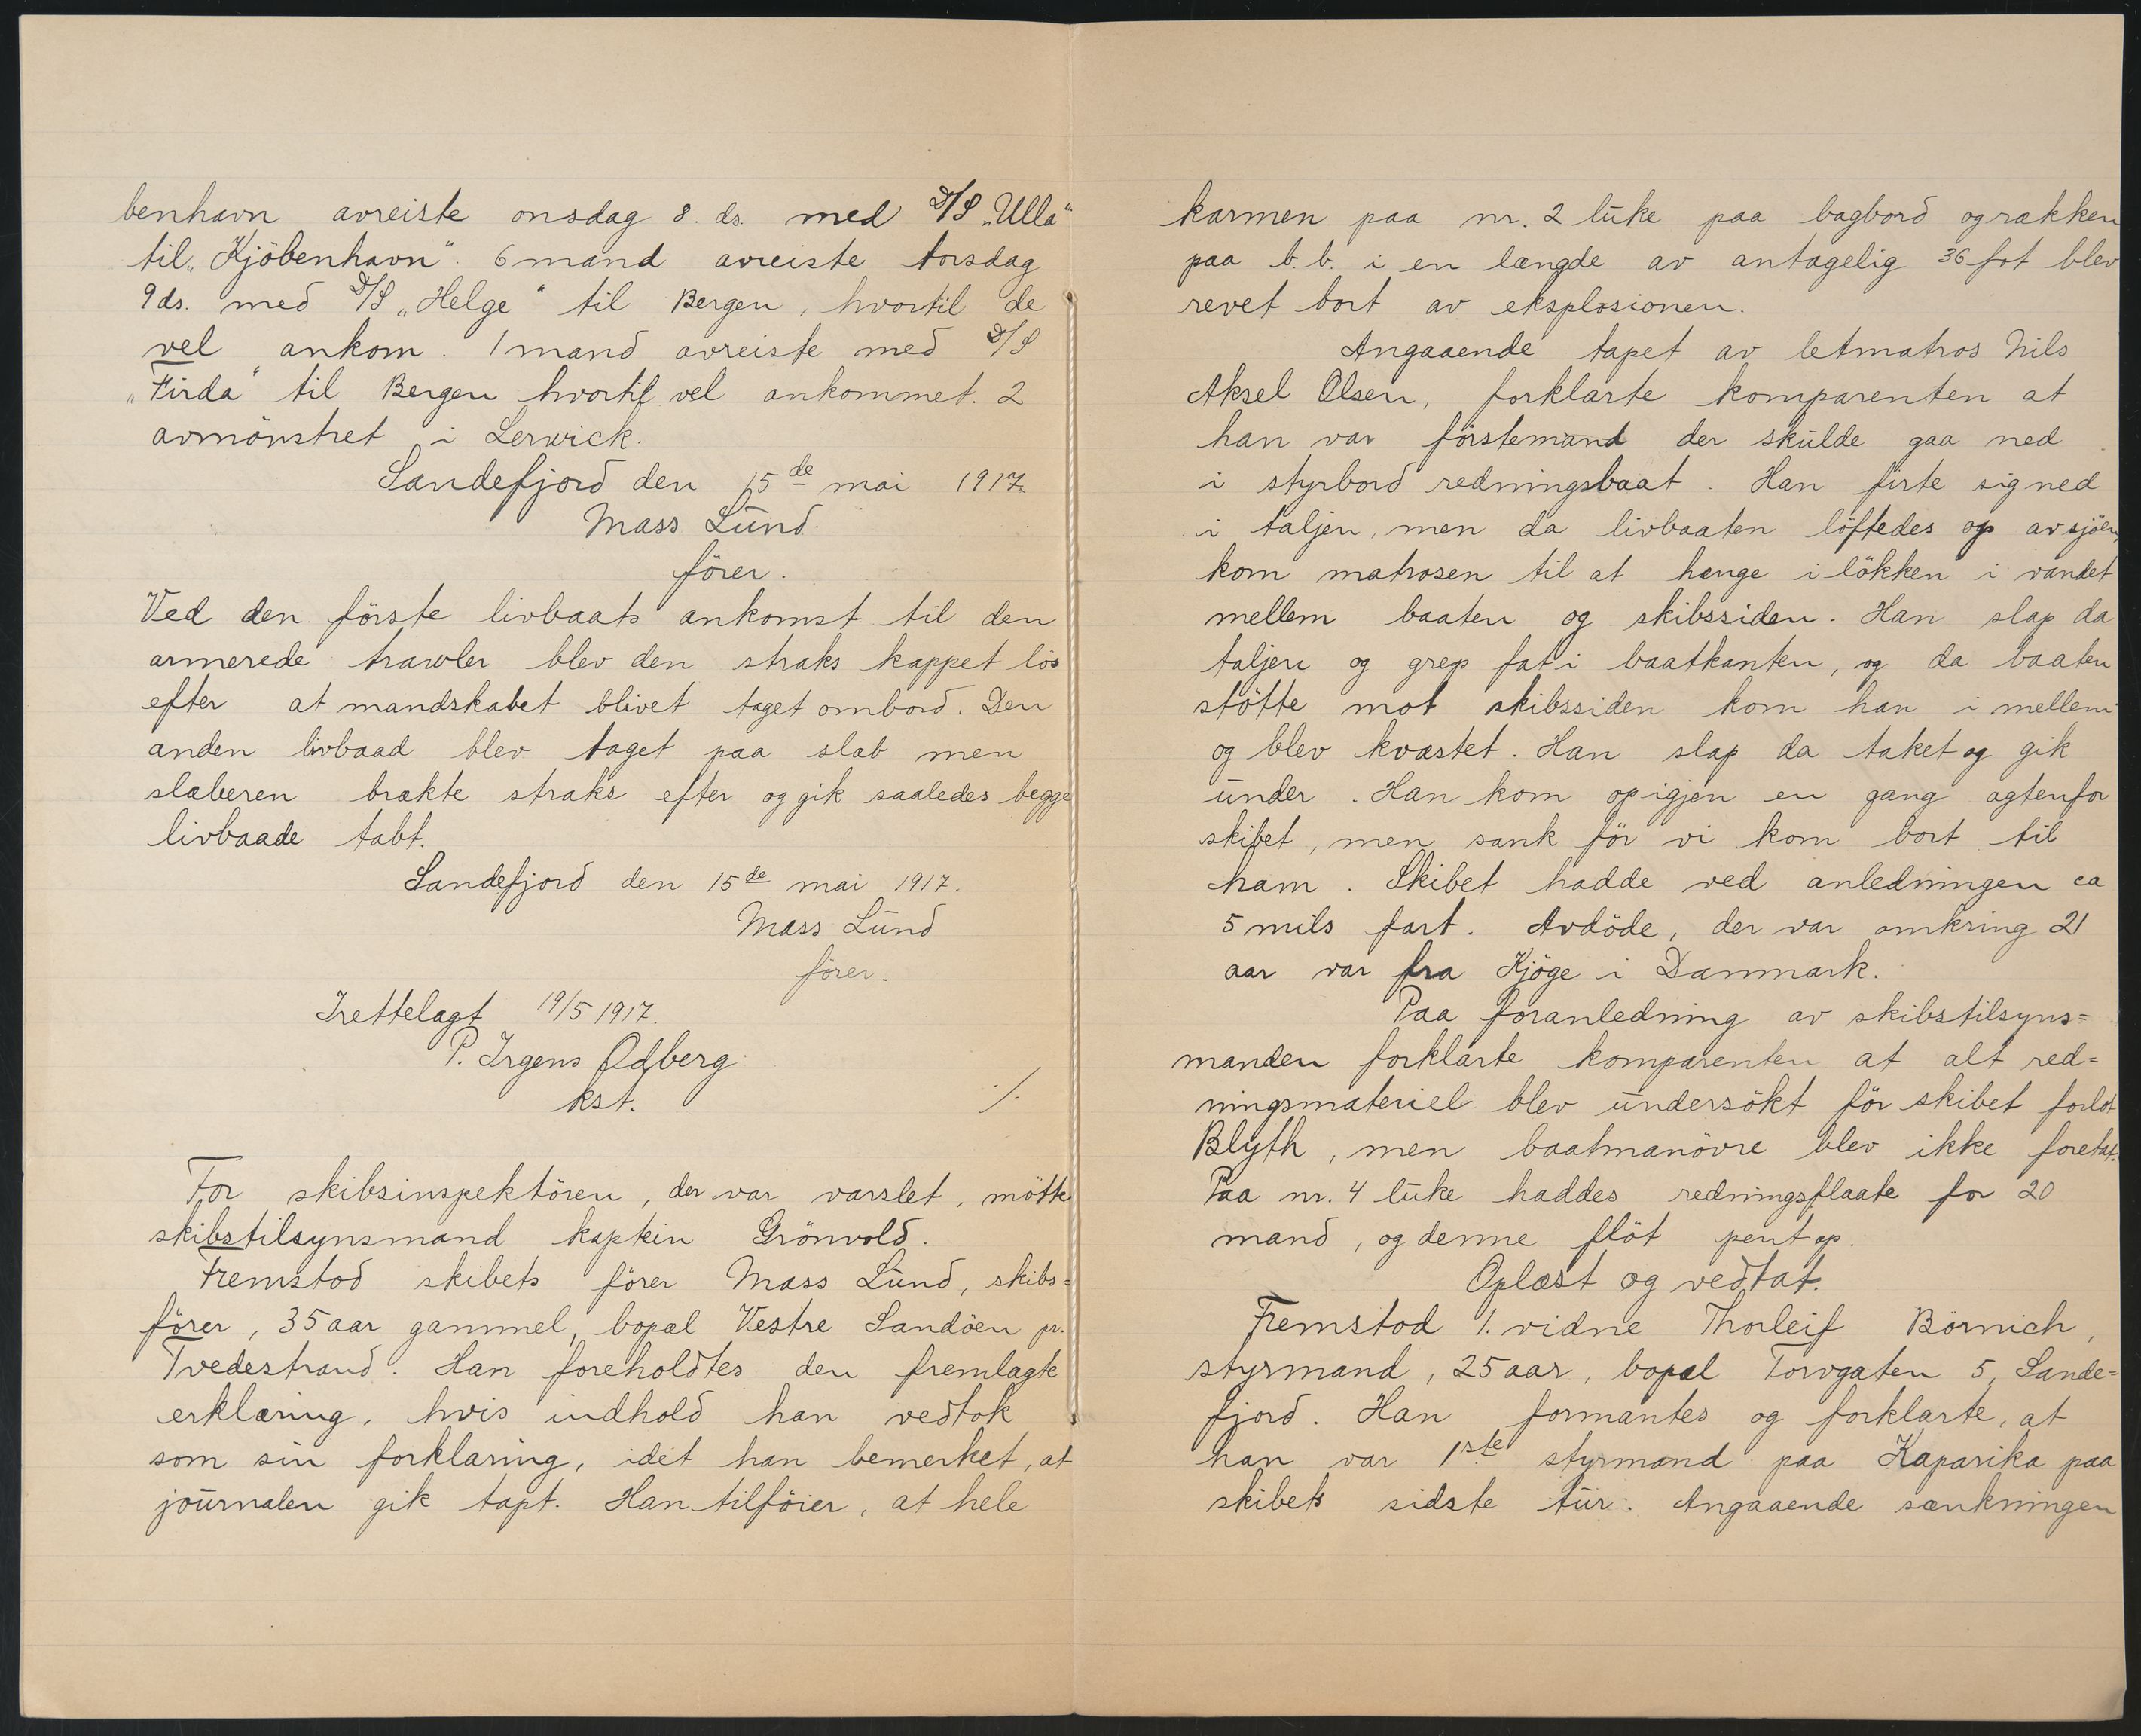 benhavn avreiste onsdag 8. ds. med D/S „Ulla"
til „Kjöbenhavn". 6 mand avreiste torsdag
9 ds. med D/S „Helge" til Bergen, hvortil de
vel ankom. 1 mand avreiste med D/S
„Firda" til Bergen hvortil vel ankommet. 2
avmönstret i Lerwick.
Sandefjord den 15de mai 1917.
Mass Lund
förer.
Ved den förste livbaats ankomst til den
armerede trawler blev den straks kappet lös
efter at mandskabet blivet taget ombord. Den
anden livbaad blev taget paa slæb men
slæberen brækte straks efter og gik saaledes begge
livbaade tabt.
Sandefjord den 15de mai 1917.
Mass Lund
förer.
Irettelagt 19/5 1917.
P. Irgens Odberg
kst.
./.
For skibsinspektören, der var varslet, mötte
skibstilsynsmand kaptein Grönvold.
Fremstod skibets förer Mass Lund, skibs=
förer, 35 aar gammel, bopæl Vestre Sandöen pr.
Tvedestrand. Han foreholdtes den fremlagte
erklæring, hvis indhold han vedtok
som sin forklaring, idet han bemerket, at
journalen gik tapt. Han tilföier, at hele
karmen paa nr. 2 luke paa bagbord og rækken
paa b.b. i en længde av antagelig 36 fot blev
revet bort av eksplosionen.
Angaaende tapet av letmatros Nils
Aksel Olsen, forklarte komparenten at
han var förstemand der skulde gaa ned
i styrbord redningsbaat. Han firte sig ned
i taljen, men da livbaaten löftedes op av sjöen,
kom matrosen til at hænge i lökken i vandet
mellem baaten og skibssiden. Han slap da
taljen og grep fat i baatkanten, og da baaten
stötte mot skibssiden kom han i mellem
og blev kvæstet. Han slap da taket og gik
under. Han kom op igjen en gang agtenfor
skibet, men sank för vi kom bort til
ham. Skibet hadde ved anledningen ca
5 mils fart. Avdöde, der var omkring 21
aar var fra Kjöge i Danmark.
Paa foranledning av skibstilsyns=
manden forklarte komparenten at alt red=
ningsmateriel blev undersökt för skibet forlot
Blyth, men baatmanövre blev ikke foretat.
Paa nr. 4 luke haddes redningsflaate for 20
mand, og denne flöt pent op.
Oplæst og vedtat.
Fremstod 1. vidne Thorleif Börnich,
styrmand, 25 aar, bopæl Torvgaten 5, Sande=
fjord. Han formantes og forklarte, at
han var 1ste styrmand paa Kaparika paa
skibets sidste tur. Angaaende sænkningen